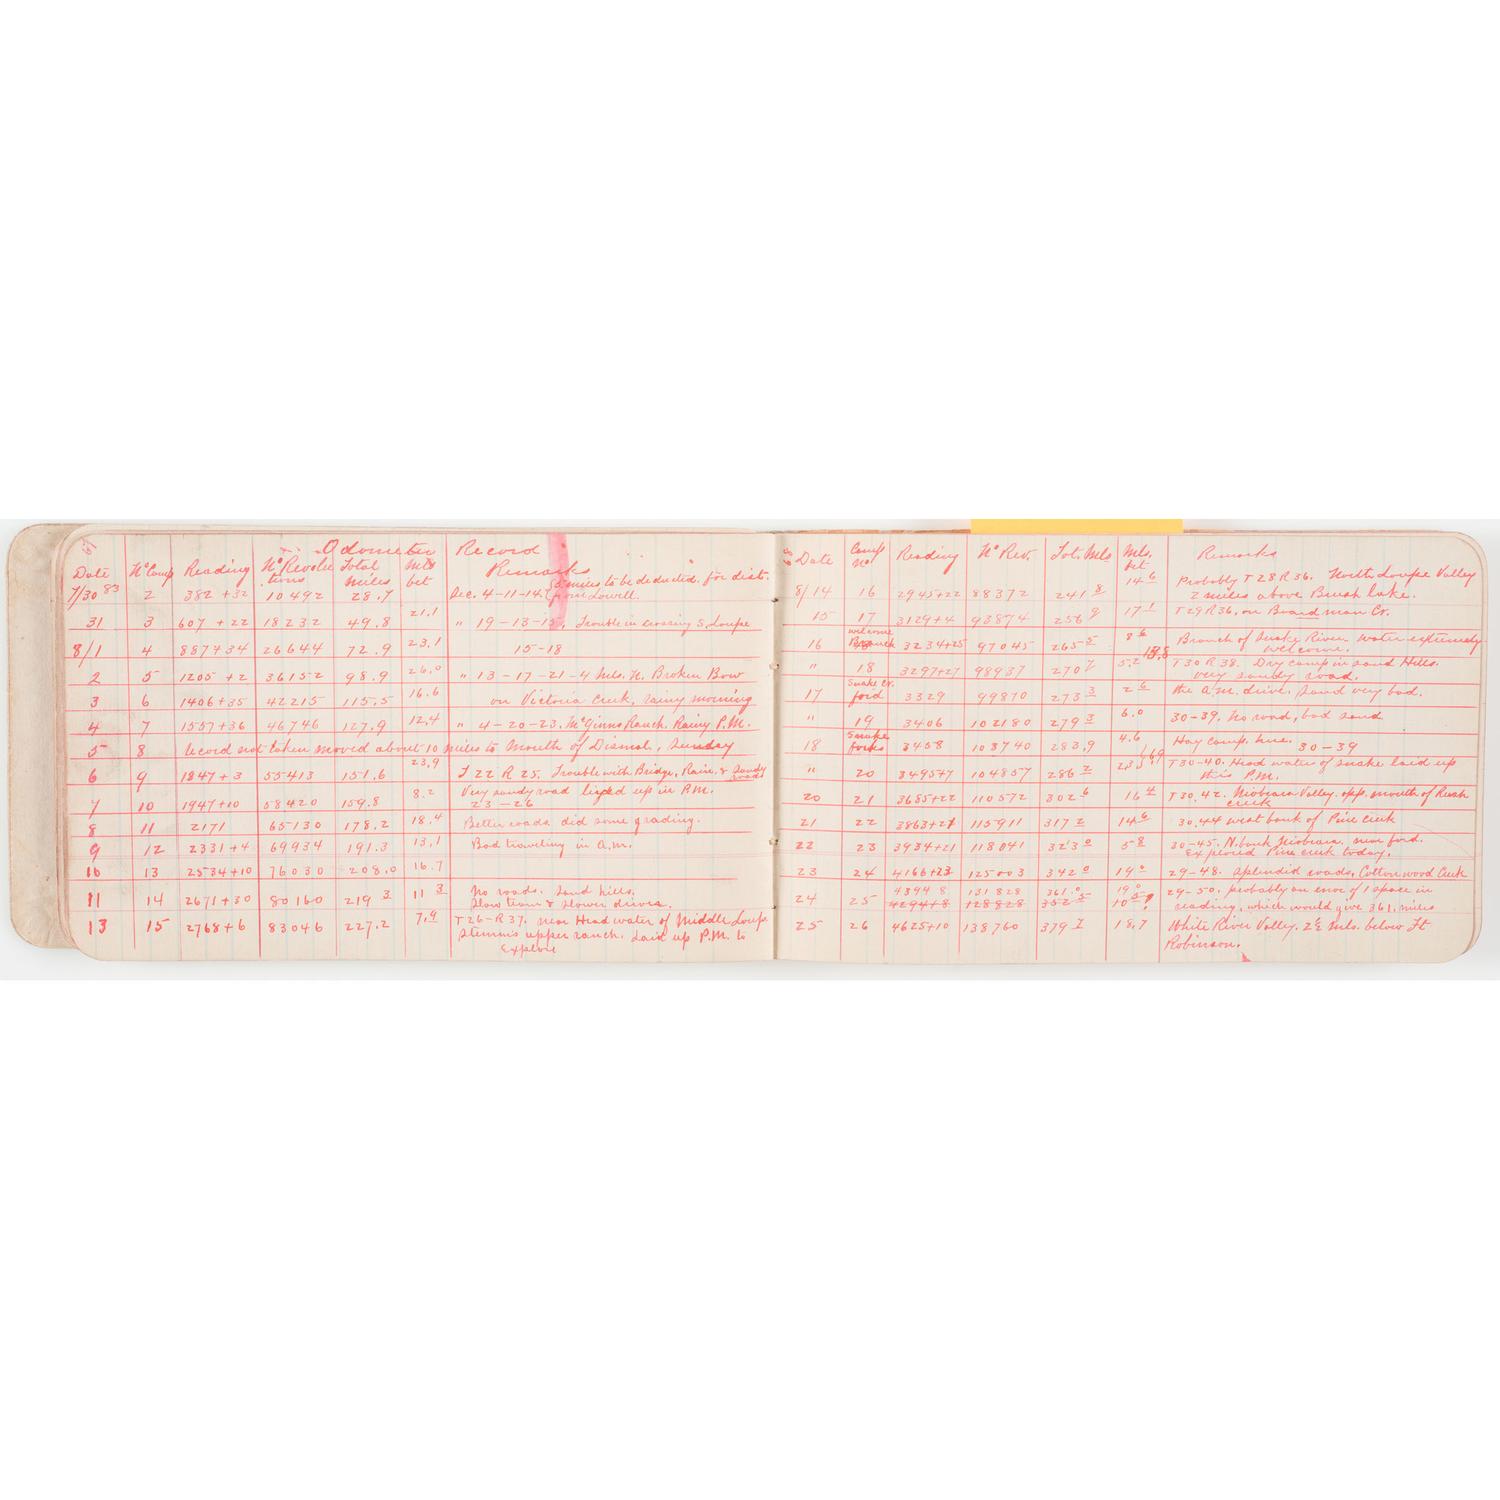 67
Odometer Record
Date Nº Camp Reading Nº Revolu Total Mls Remarks
tions Miles bet
7/30 83 2 382 + 32 10492 28.7 Sec. 4-11-14. miles to be deducted for dist.
from Lowell.
31 3 607 + 22 18232 49.8 21.1 " 19-13-15, Trouble in crossing S. Loupe
8/1 4 887+34 26644 72.9 23.1 15-18
2 5 1205 +2 36152 98.9 26.0 " 13-17-21-4 Mls. N. Broken Bow
3 6 1406+35 42215 115.5 16.6 on Victoria Creek, rainy morning
4 7 1557+36 46746 127.9 12.4 " 4-20-23. McGinns Ranch. Rainy P.M.
5 8 Record not taken moved about 10 miles to Mouth of Dismal, Sunday
6 9 1847+3 55413 151.6 23.9 T 22 R 25. Trouble with Bridge, Rain, & Sandy
road
7 10 1947+10 58420 159.8 8.2 Very sandy road layed up in P.M.
23-26
8 11 2171 65130 178.2 18.4 Better roads did some grading.
9 12 2331+4 69934 191.3 13.1 Bad traveling in A.M.
10 13 2534+10 76030 208.0 16.7
11 14 2671+30 80160 219 3 11 3 No roads. Sand hills.
Slow team & slower drivers.
13 15 2768+6 83046 227.2 7.9 T26-R37. near Head water of Middle Loupe
Stemms upper ranch. Laid up P.M. to
Explore
Date Camp Reading Nº Rev. Tot. Mls Mls. Remarks
Nº bet
8/14 16 2945+22 88372 241 8 14 6 Probably T28R36. North Loupe Valley
2 miles above Brush lake.
15 17 3129+4 93874 256 9 17 1 T29R36, on Boardman Cr.
16 Welcome Branch 3234+25 97045 265 5 8 6 Branch of Snake River water extremely
welcome.
" 18 3297+27 98937 270 7 5.2 13.8 T30 R38. Dry camp in sand Hills.
very sandy road.
17 Snake Cr. ford 3329 99870 273 3 2 6 the A.M. drive. Sand very bad.
" 19 3406 102180 279 3 6.0 30-39. No road, bad sand
18 Snake forks 3458 103740 283.9 4.6 Hay camp here. 30-39
" 20 3495+7 104857 286 2 T30-40. Head water of Snake laid up
this P.M.
20 21 3685+22 110572 302 6 16 4 T30.42. Niobrara Valley. opp. mouth of Rush
creek
21 22 3863+21 115911 317 2 14 6 30.44 west bank of Pine Creek
22 23 3934+21 118041 323 0 5 8 30-45. N. bank Niobrara, near ford.
Explored Pine creek today.
23 24 4166+23 125003 342 0 19 0 29-48. Splendid roads, Cotton wood Creek
24 25 4394 8 131828 361.0 19 0 29-50. probably an error of 1 space in
4294+8 128828 352 5 10 5 ? reading, which would give 361, miles
25 26 4625+10 138760 379 7 18.7 White River Valley. 2½ Mls. below Ft
Robinson.